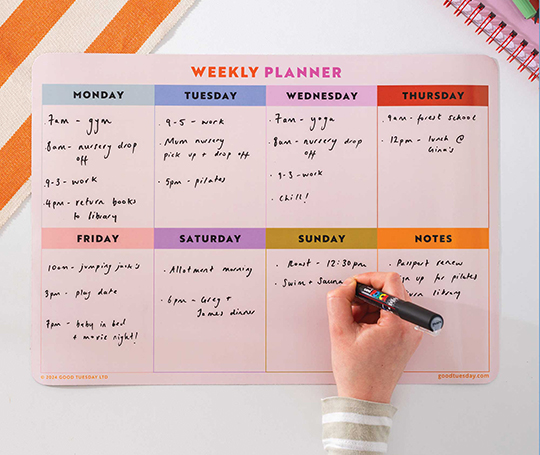 WEEKLY PLANNER
MONDAY
7am - gym
8am - nursery drop
off
9-3 - work
4pm - return books
to library
TUESDAY
9-5 - work
Mum nursery
pick up + drop off
5pm - pilates
WEDNESDAY
7am - yoga
8am - nursery drop
off
9-3 - work
Chill!
THURSDAY
9am - forest school
12pm - lunch @
Gina's
FRIDAY
10am - jumping jack's
3pm - play date
7pm - baby in bed
+ movie night!
SATURDAY
Allotment morning
6pm - Greg +
James dinner
SUNDAY
Roast - 12:30pm
Swim + Sauna
NOTES
Passport renew
sign up for pilates
library
© 2024 GOOD TUESDAY LTD
goodtuesday.com